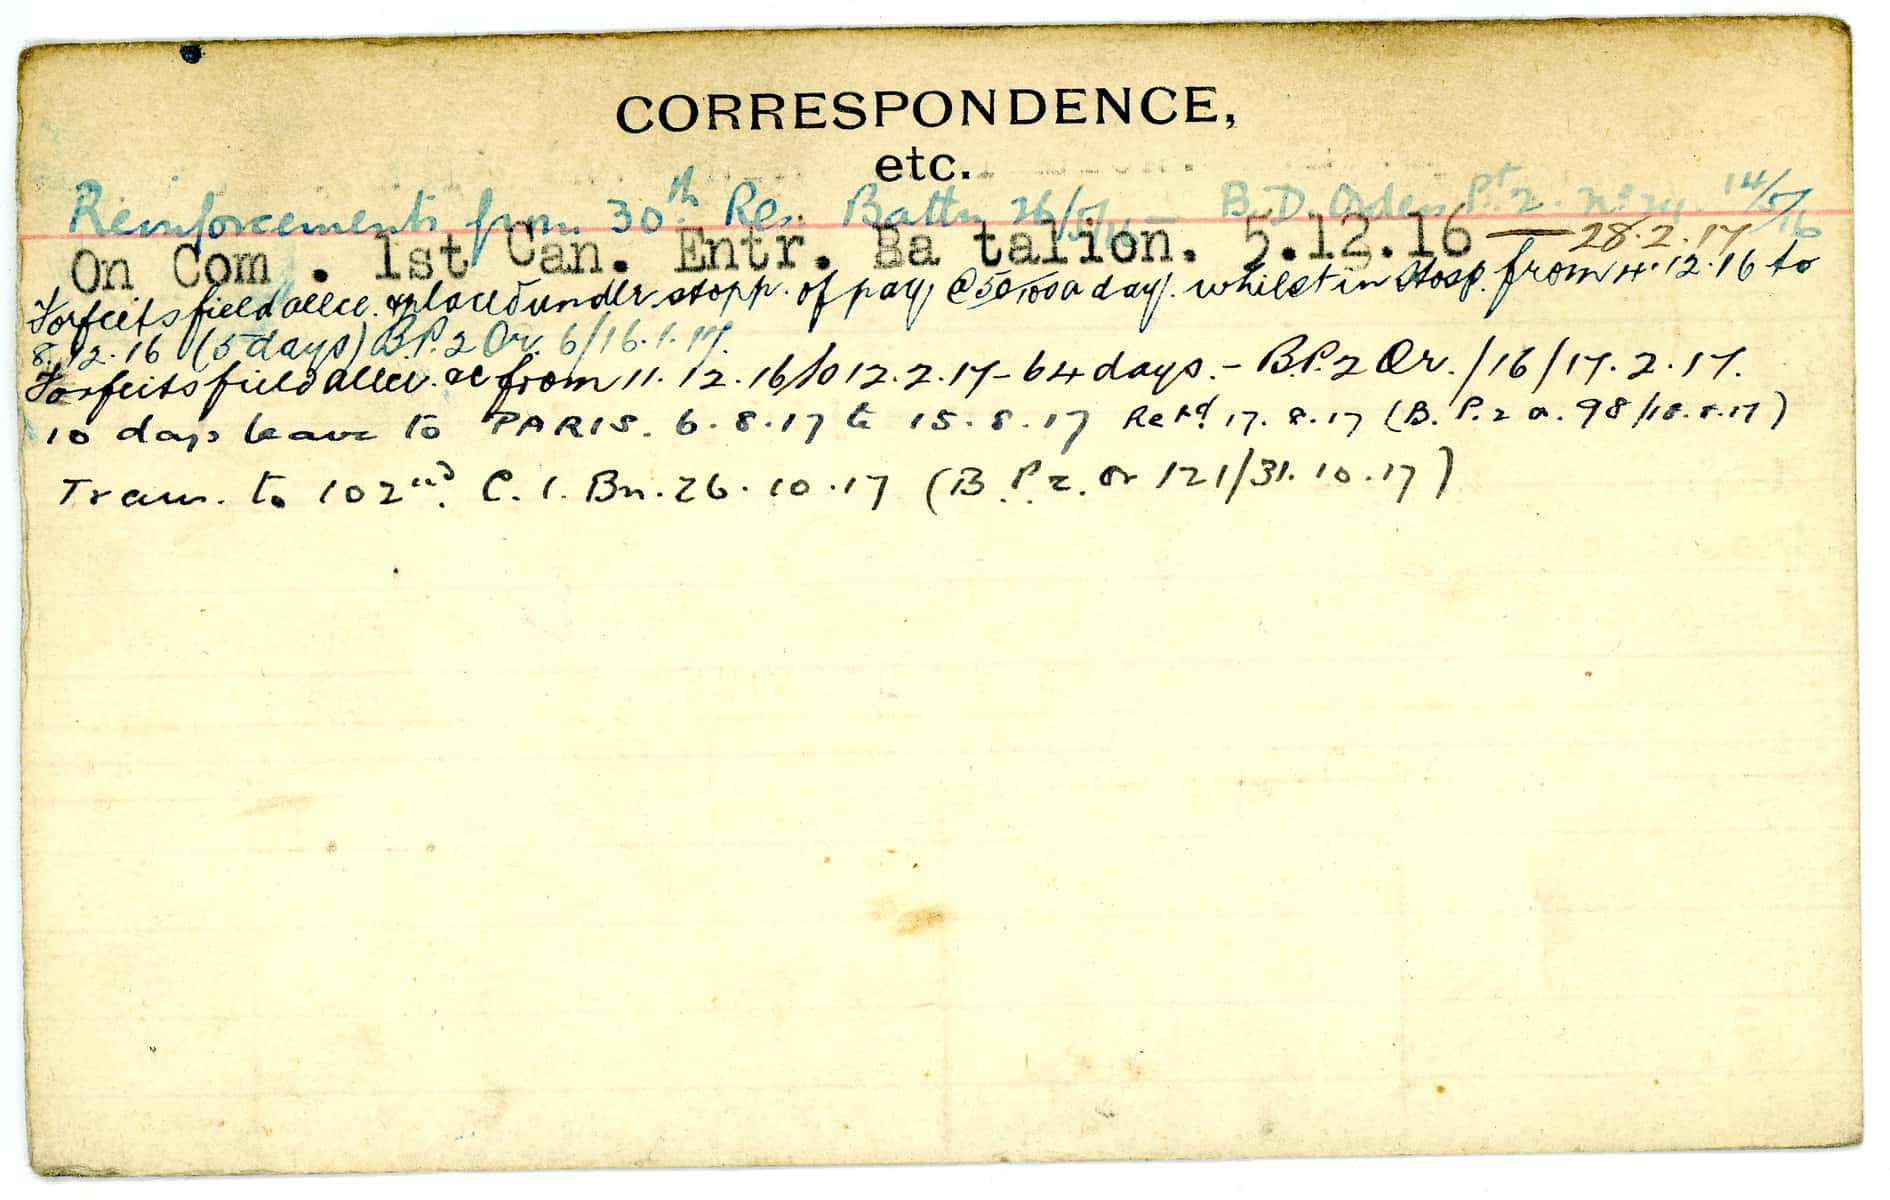 CORRESPONDENCE,
etc.
Reinforcements from 30th Res. Battn 26/5/16 — B.D. Orders Pt 2. No 24. 14/5/16
On Com . 1st Can. Entr. Ba talion. 5.12.16 — 28.2.17
Forfeits field allce. & placed under stopp. of pay @ 50 a day. whilst in Hosp. from 4.12.16 to
8.12.16 (5 days) B.P.2 Or. 6/16.1.17.
Forfeits field allce. &c from 11.12.16 to 12.2.17 - 64 days. - B.P.2 Or. /16/17.2.17.
10 days leave to PARIS. 6.8.17 to 15.8.17 Retd 17.8.17 (B.P.2 o. 98/18.8.17)
Trans. to 102nd C.I.Bn. 26.10.17 (B.P.2. Or 121/31.10.17)